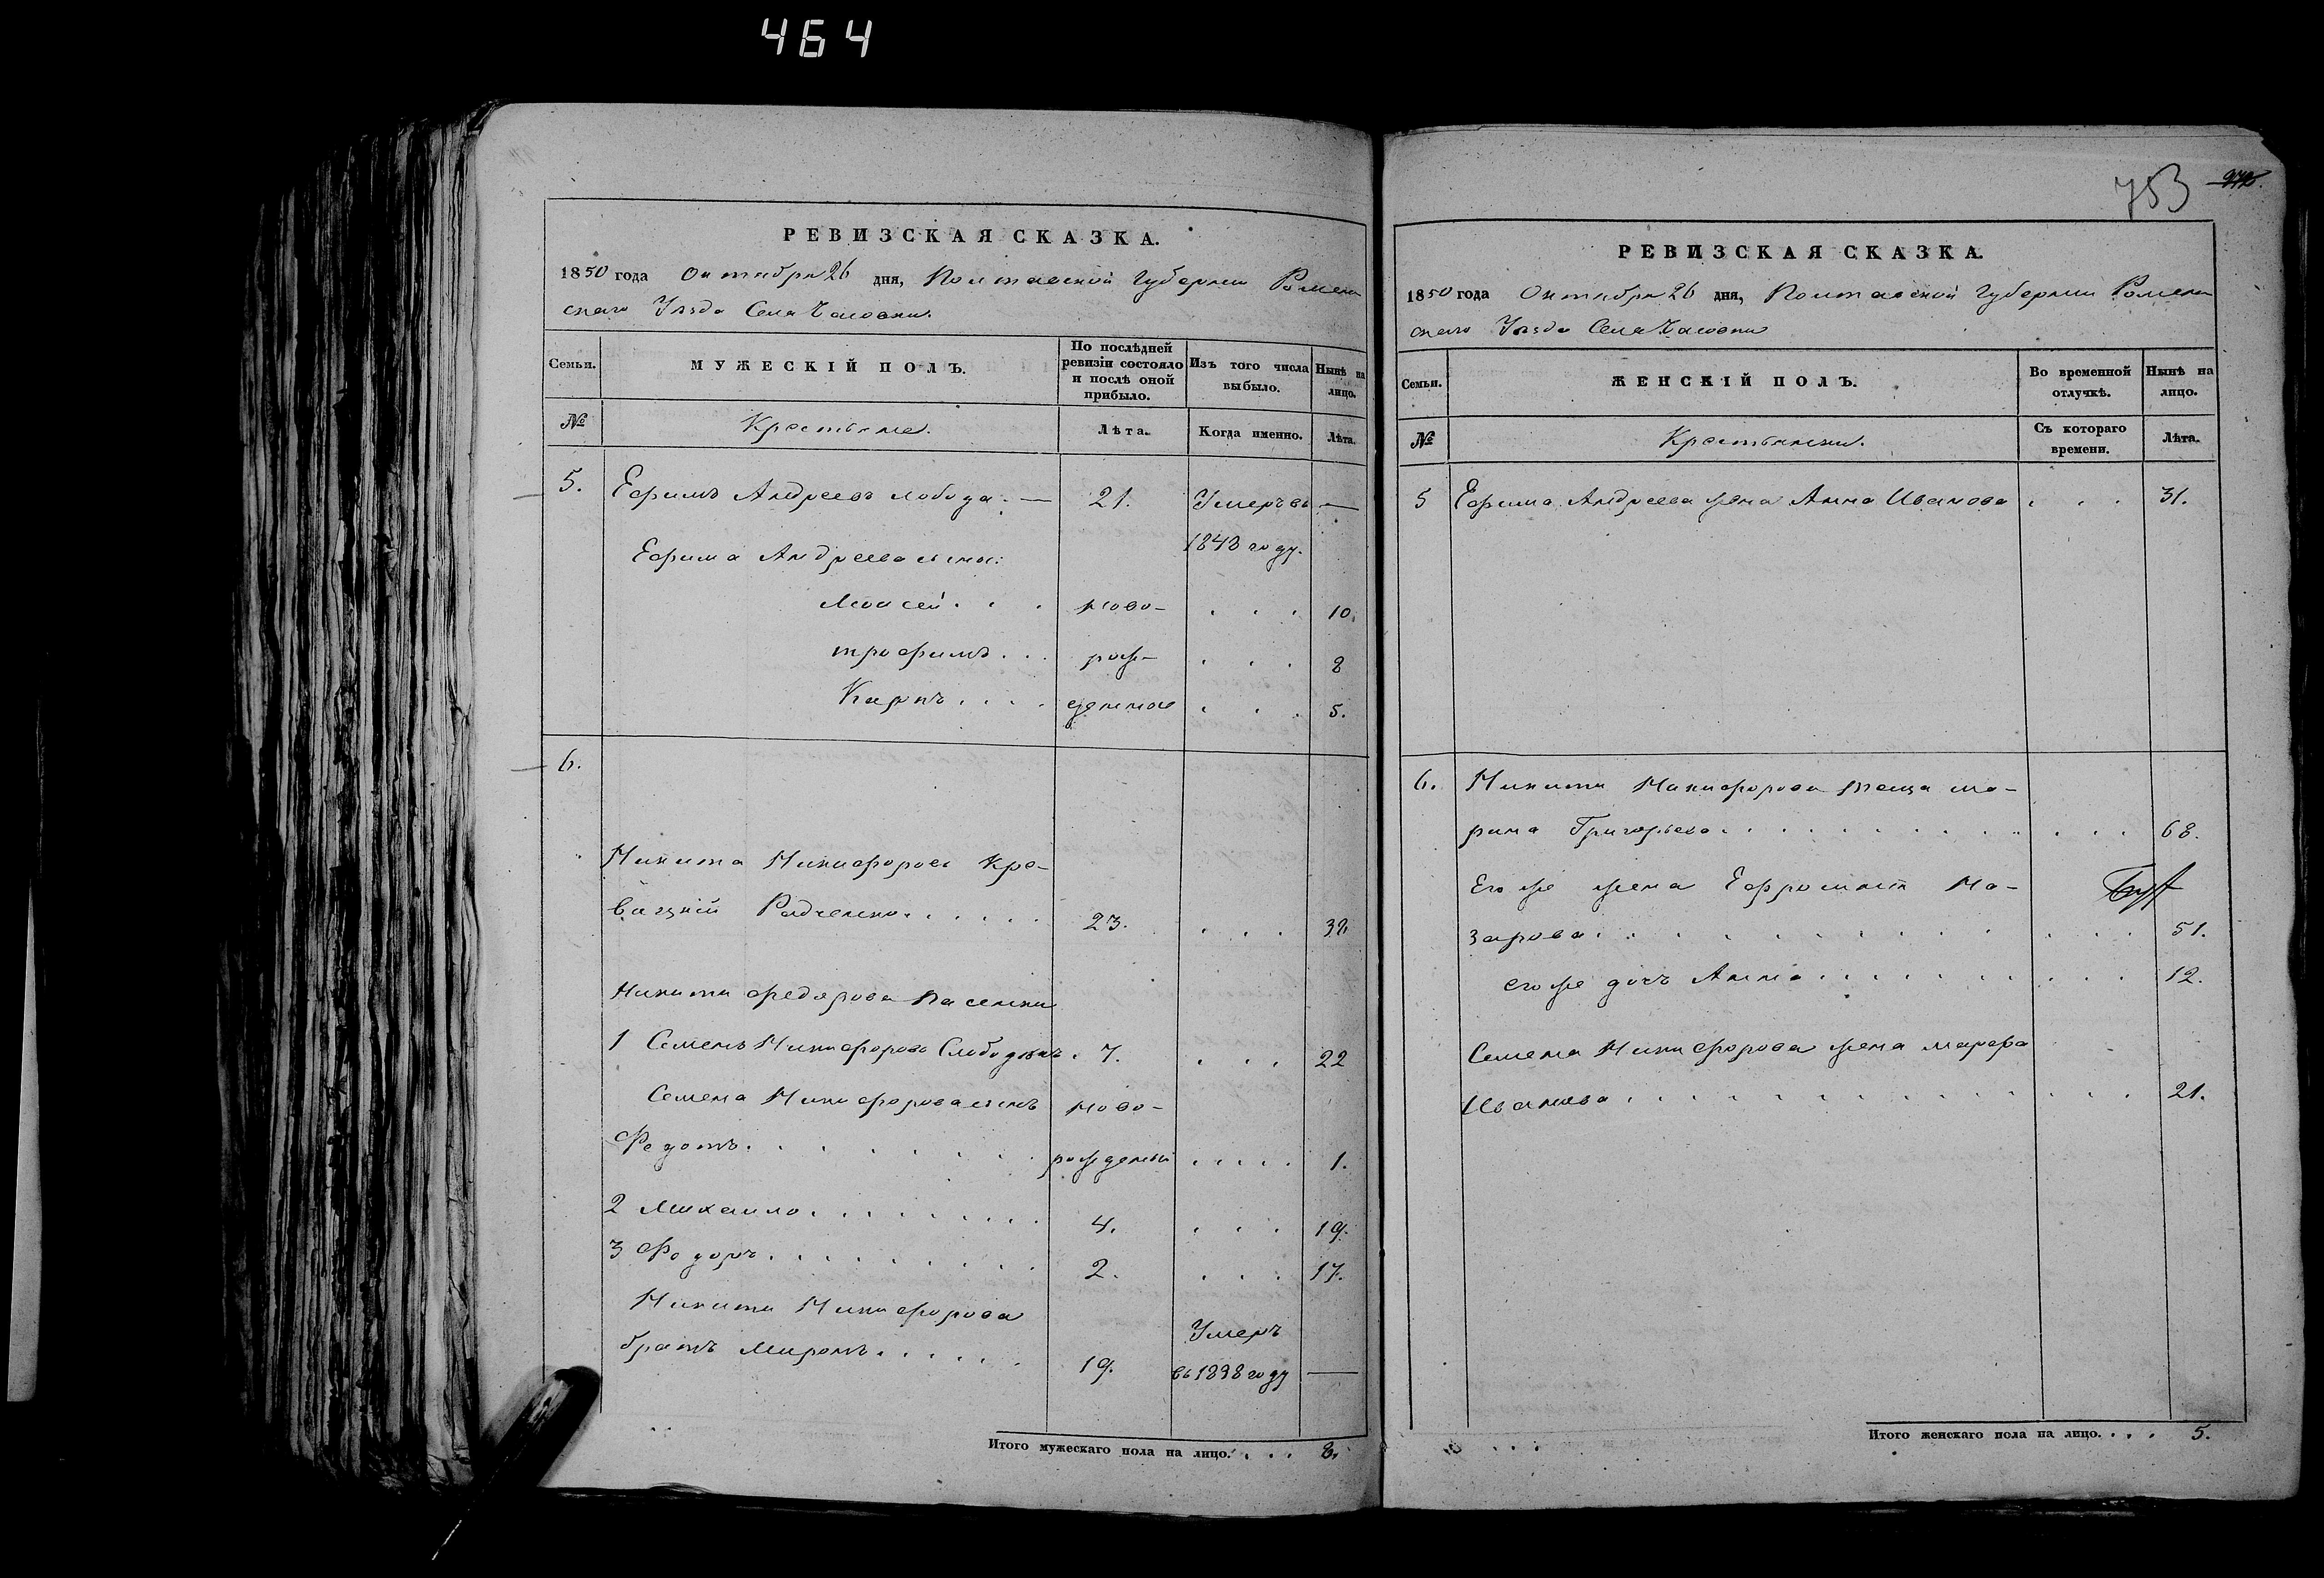 464
РЕВИЗСКАЯ СКАЗКА.
1850 года Октября 26 дня, Полтавской Губернии Ромен
скаго Уѣзда Села
Семьи.
МУЖЕСКІЙ ПОЛЪ.
По послѣдней ревизіи состояло и послѣ оной прибыло.
Изъ того числа выбыло.
Нынѣ на лицо.
№
Крестьяне.
Лѣта.
Когда именно.
Лѣта.
5. Ефимъ Андреевъ лобода. — 21. Умеръ въ —
1843 году.
Ефима Андреева сыны:
Моисей . . . ново- . . . 10.
трофимъ . . . рож- . . . 8
Карпъ . . . . денные . . . 5.
6.
Никита Никифоровъ Кра-
Радченко . . . . . 23. . . .
Никити федорова пасенки
1 Семенъ Никифоровъ . 7. . . . 22
Семена Никифорова сынъ ново-
Федотъ . . . . . . . . рожденый . . . . . 1.
2 Михаило . . . . . . . . 4. . . . 19.
3 Федоръ . . . . . . . . . 2. . . . 17.
Никити Никифорова
братъ Миронъ . . . . . 19. Умеръ
въ 1838 году —
Итого мужескаго пола на лицо. . . . 8.
753
РЕВИЗСКАЯ СКАЗКА.
1850 года Октября 26 дня, Полтавской Губернии Ромен
скаго Уѣзда Села
Семьи.
ЖЕНСКІЙ ПОЛЪ.
Во временной отлучкѣ.
Нынѣ на лицо.
№
Крестьянки.
Съ котораго времени.
Лѣта.
5 Ефима Андреева жена Анна Иванова . . . 31.
6. Никити Никифорова теща ма-
рина Григорьева . . . . . . . . . . . . . 68.
Его же жена Ефросинія На-
зарова . . . . . . . . . . . . . 51.
его же дочь Анна . . . . . . . . . . . 12.
Семена Никифорова жена марфа
Иванова . . . . . . . . . . . . . . . 21.
Итого женскаго пола на лицо. . . . 5.